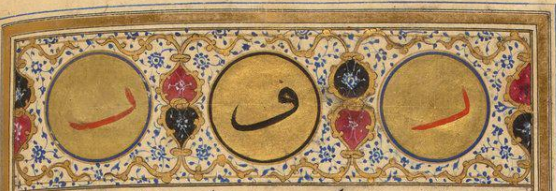 ر و ر